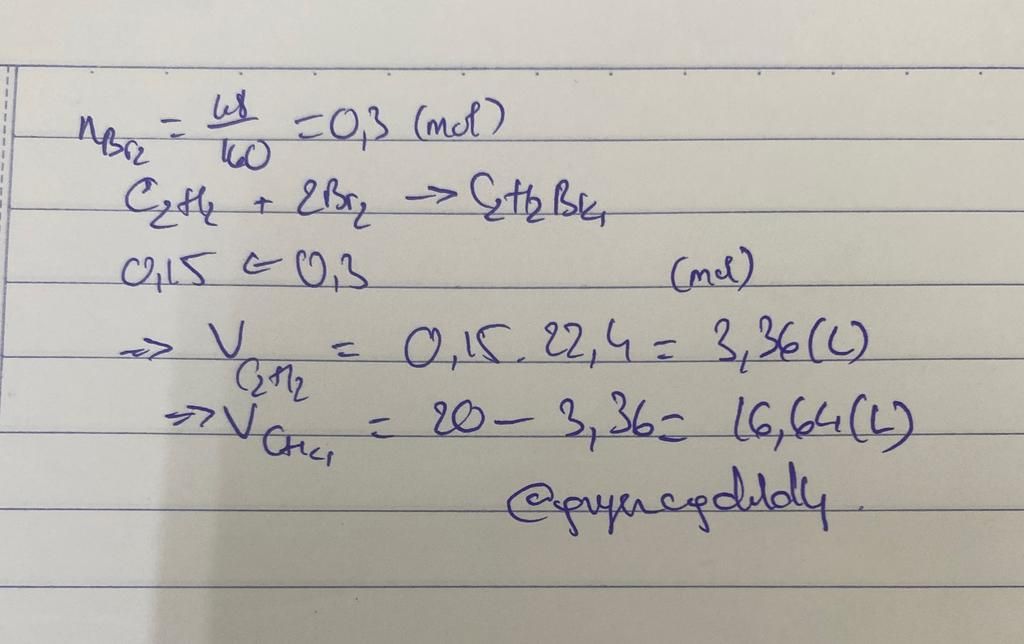 nBr2 = 48/160 = 0,3 (mol)
C2H2 + 2Br2 → C2H2Br4
0,15 ← 0,3 (mol)
⇒ VC2H2 = 0,15 . 22,4 = 3,36 (L)
⇒ VCH4 = 20 - 3,36 = 16,64 (L)